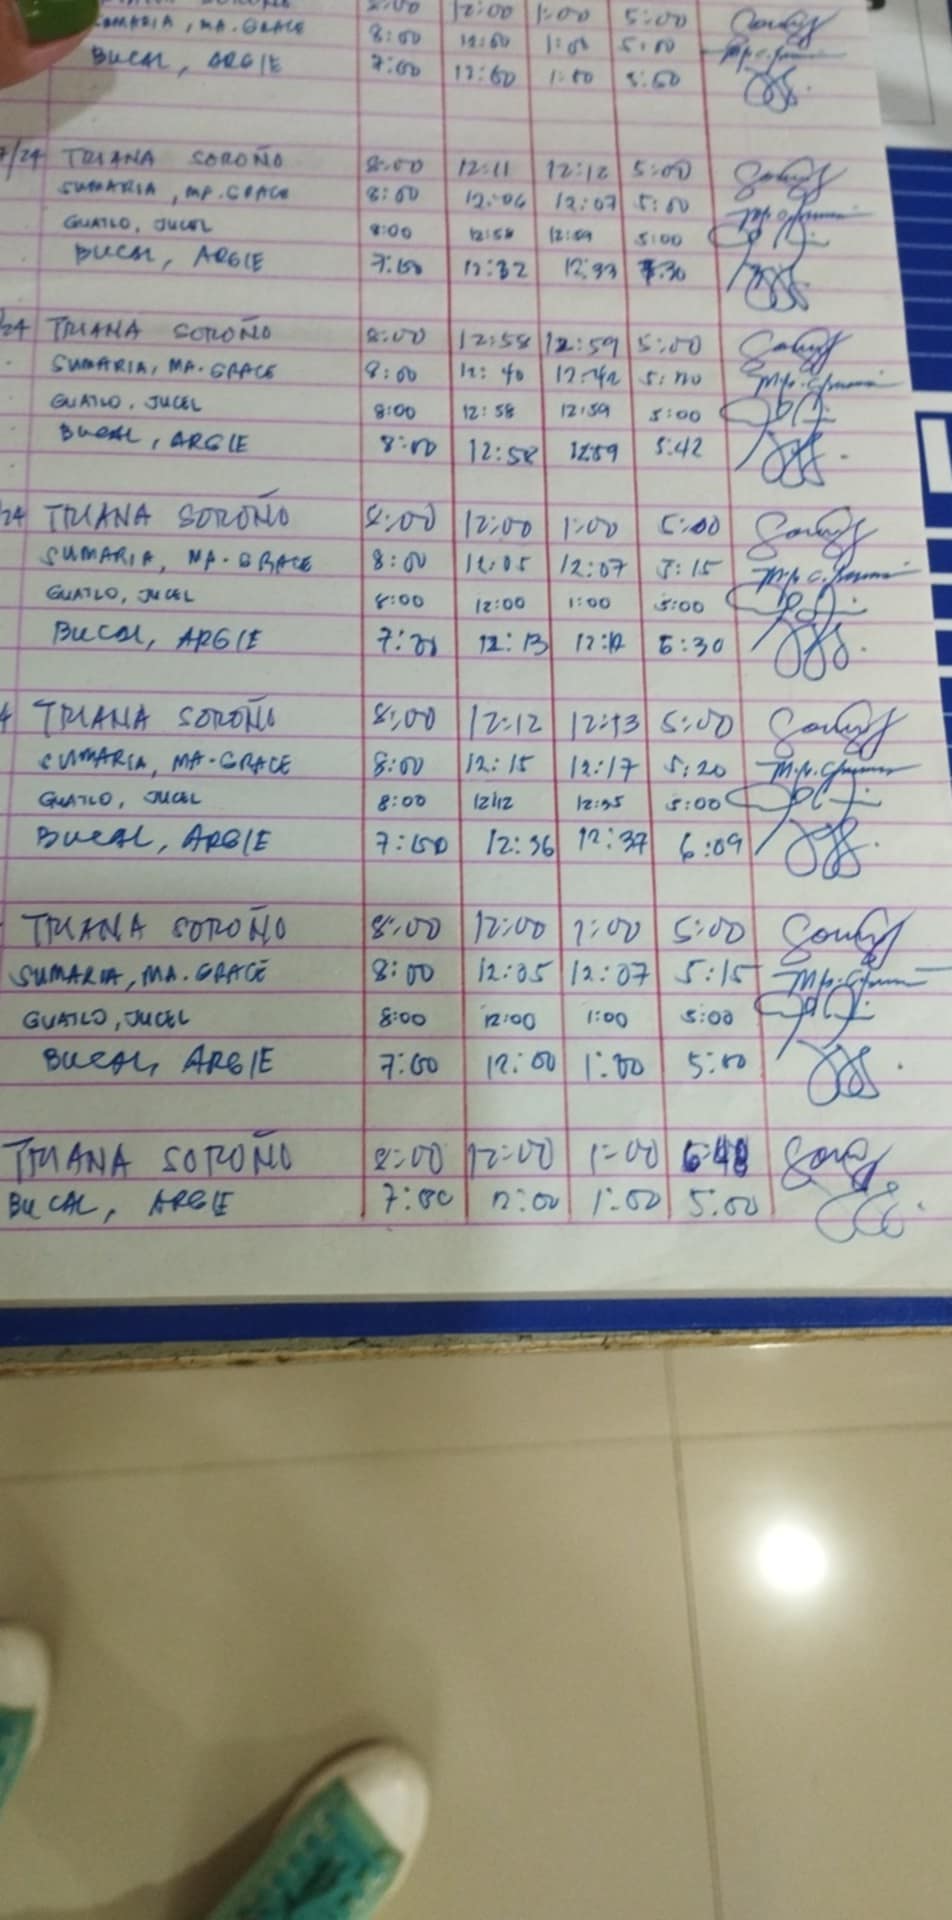 8:00 12:00 1:00 5:00
SUMARIA, MA. GRACE 8:00 12:00 1:00 5:00
BUCAL, ARGIE 7:00 12:00 1:00 5:00
7/24 TRIANA SOROÑO 8:00 12:11 12:12 5:00
SUMARIA, MA. GRACE 8:00 12:06 12:07 5:00
GUATLO, JUCEL 8:00 12:58 12:59 5:00
BUCAL, ARGIE 7:00 12:32 12:33 7:30
/24 TRIANA SOROÑO 8:00 12:58 12:59 5:00
SUMARIA, MA. GRACE 8:00 12:40 12:42 5:20
GUATLO, JUCEL 8:00 12:58 12:59 5:00
BUCAL, ARGIE 8:00 12:58 12:59 5:42
/24 TRIANA SOROÑO 8:00 12:00 1:00 5:00
SUMARIA, MA. GRACE 8:00 12:05 12:07 5:15
GUATLO, JUCEL 8:00 12:00 1:00 5:00
BUCAL, ARGIE 12:13 6:30
4 TRIANA SOROÑO 8:00 12:12 12:13 5:00
SUMARIA, MA. GRACE 8:00 12:15 12:17 5:20
GUATLO, JUCEL 8:00 12:12 12:35 5:00
BUCAL, ARGIE 7:00 12:36 12:37 6:09
TRIANA SOROÑO 8:00 12:00 1:00 5:00
SUMARIA, MA. GRACE 8:00 12:05 12:07 5:15
GUATLO, JUCEL 8:00 12:00 1:00 5:00
BUCAL, ARGIE 7:00 12:00 1:00 5:00
TRIANA SOROÑO 8:00 12:00 1:00
BUCAL, ARGIE 7:00 12:00 1:00 5:00